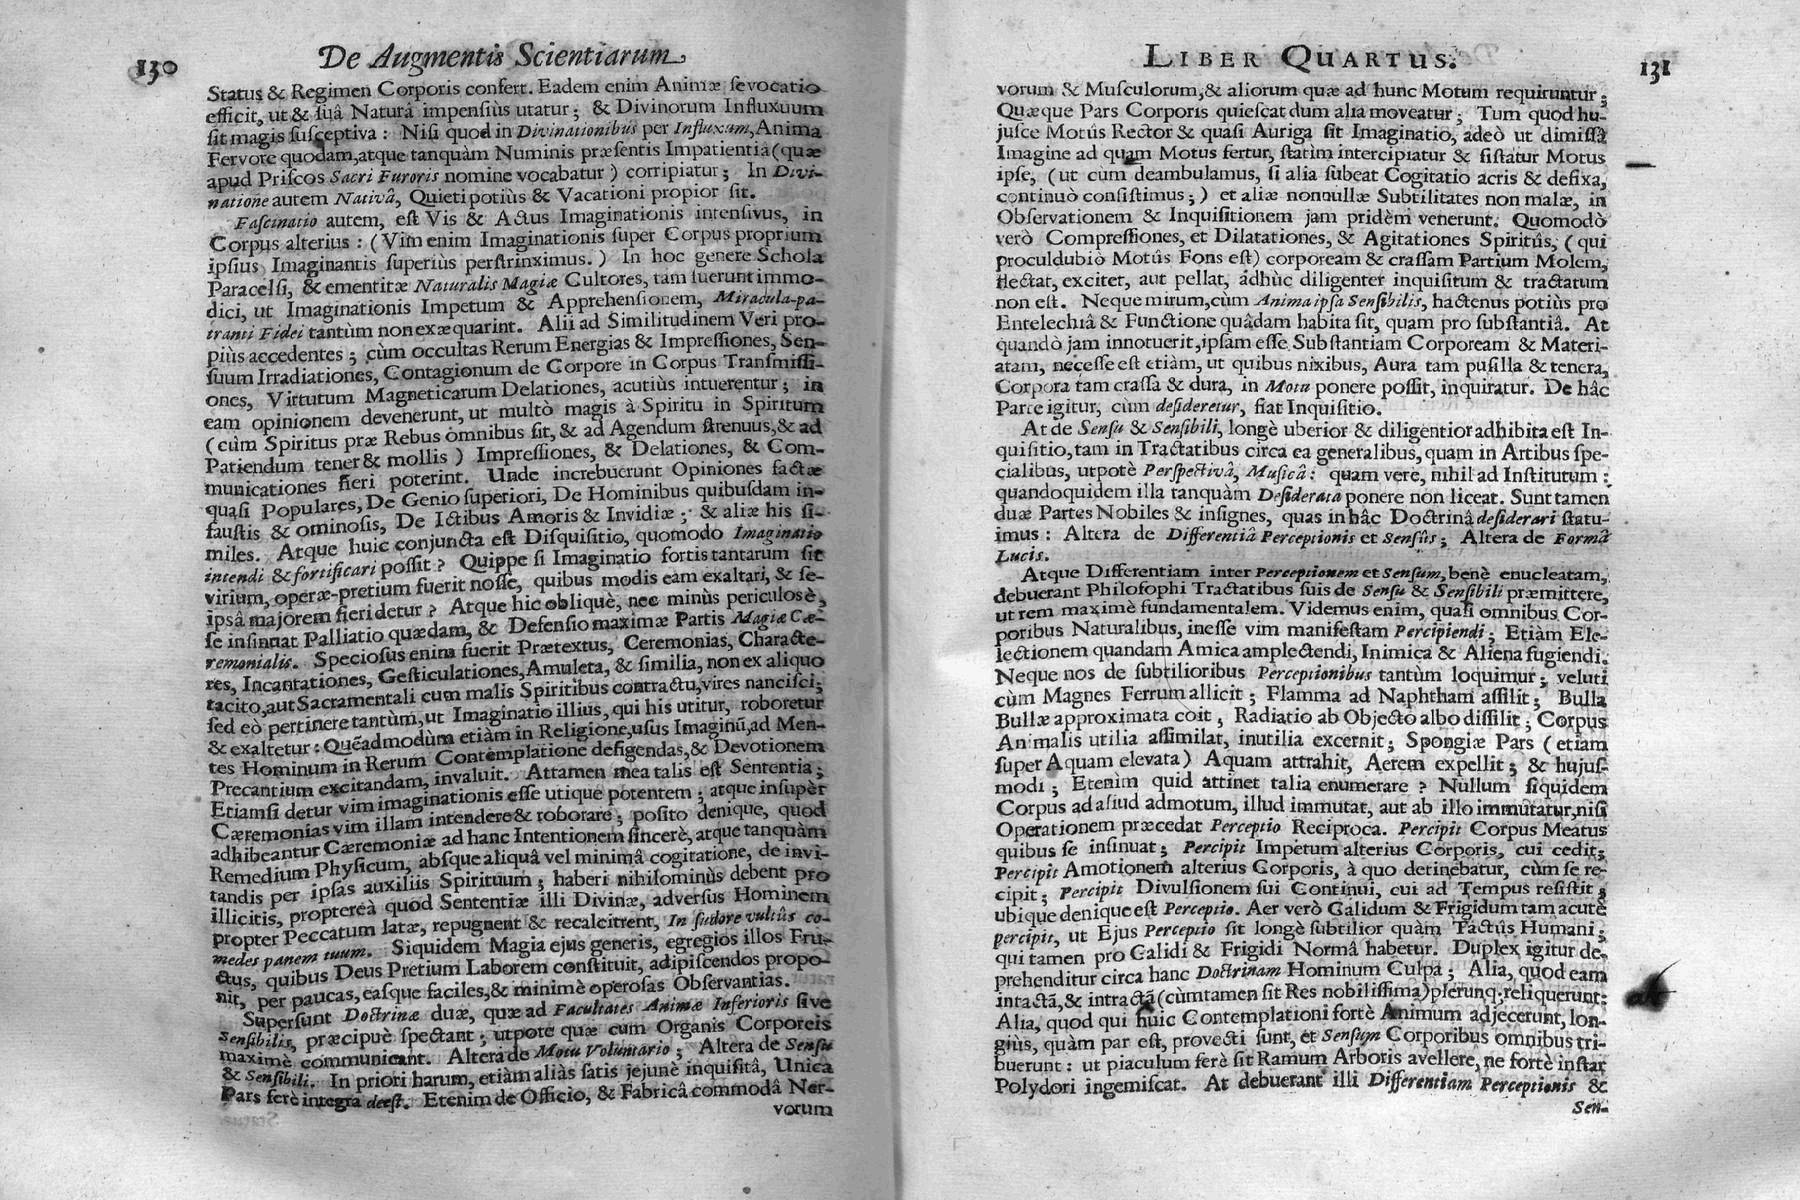 130
De Augmentis Scientiarum
Status & Regimen Corporis confert. Eadem enim Animæ sevocatio
efficit, ut & suâ Naturâ impensiùs utatur; & Divinorum Influxuum
sit magis susceptiva: Nisi quod in Divinationibus per Influxum, Anima
Fervore quodam, atque tanquàm Numinis præsentis Impatientiâ (quæ
apud Priscos Sacri Furoris nomine vocabatur) corripiatur; In Divi-
natione autem Nativâ, Quieti potiùs & Vacationi propior sit.
Fascinatio autem, est Vis & Actus Imaginationis intensivus, in
Corpus alterius: (Vim enim Imaginationis super Corpus proprium
ipsius Imaginantis superiùs perstrinximus.) In hoc genere Schola
Paracelsi, & ementitæ Naturalis Magiæ Cultores, tam fuerunt immo-
dici, ut Imaginationis Impetum & Apprehensionem, Miracula-pa-
tranti Fidei tantùm non exæquarint. Alii ad Similitudinem Veri pro-
piùs accedentes; cùm occultas Rerum Energias & Impressiones, Sen-
suum Irradiationes, Contagionum de Corpore in Corpus Transmissi-
ones, Virtutum Magneticarum Delationes, acutiùs intuerentur; in
eam opinionem devenerunt, ut multò magis à Spiritu in Spiritum
(cùm Spiritus præ Rebus omnibus sit, & ad Agendum strenuus, & ad
Patiendum tener & mollis) Impressiones, & Delationes, & Com-
municationes fieri poterint. Unde increbuerunt Opiniones factæ
quasi Populares, De Genio superiori, De Hominibus quibusdam in-
faustis & ominosis, De Ictibus Amoris & Invidiæ; & aliæ his si-
miles. Atque huic conjuncta est Disquisitio, quomodo Imaginatio
intendi & fortificari possit? Quippe si Imaginatio fortis tantarum sit
virium, operæ-pretium fuerit nosse, quibus modis eam exaltari, & se-
ipsâ majorem fieri detur? Atque hic obliquè, nec minùs periculosè,
se insinuat Palliatio quædam, & Defensio maximæ Partis Magiæ Cæ-
remonialis. Speciosus enim fuerit Prætextus, Ceremonias, Characte-
res, Incantationes, Gesticulationes, Amuleta, & similia, non ex aliquo
tacito, aut Sacramentali cum malis Spiritibus contractu, vires nancisci;
sed eò pertinere tantùm, ut Imaginatio illius, qui his utitur, roboretur
& exaltetur: Quēadmodùm etiàm in Religione, usus Imaginū, ad Men-
tes Hominum in Rerum Contemplatione defigendas, & Devotionem
Precantium excitandam, invaluit. Attamen mea talis est Sententia;
Etiamsi detur vim imaginationis esse utique potentem; atque insupèr
Cæremonias vim illam intendere & roborare; posito denique, quod
adhibeantur Cæremoniæ ad hanc Intentionem sincerè, atque tanquàm
Remedium Physicum, absque aliquâ vel minimâ cogitatione, de invi-
tandis per ipsas auxiliis Spirituum; haberi nihilominùs debent pro
illicitis, proptereà quod Sententiæ illi Divinæ, adversus Hominem
propter Peccatum latæ, repugnent & recalcitrent, In sudore vultûs co-
medes panem tuum. Siquidem Magia ejus generis, egregios illos Fru-
ctus, quibus Deus Pretium Laborem constituit, adipiscendos propo-
nit, per paucas, easque faciles, & minimè operosas Observantias.
Supersunt Doctrinæ duæ, quæ ad Facultates Animæ Inferioris sive
Sensibilis, præcipuè spectant; utpote quæ cum Organis Corporeis
maximè communicant. Altera de Motu Voluntario; Altera de Sensu
& Sensibili. In priori harum, etiàm aliàs satis jejunè inquisitâ, Unica
Pars ferè integra deest. Etenim de Officio, & Fabricâ commodâ Ner-
vorum
LIBER QUARTUS.
131
vorum & Musculorum, & aliorum quæ ad hunc Motum requiruntur;
Quæque Pars Corporis quiescat dum alia moveatur; Tum quod hu-
jusce Motûs Rector & quasi Auriga sit Imaginatio, adeò ut dimissâ
Imagine ad quam Motus fertur, statìm intercipiatur & sistatur Motus
ipse, (ut cùm deambulamus, si alia subeat Cogitatio acris & defixa,
continuò consistimus;) et aliæ nonnullæ Subtilitates non malæ, in
Observationem & Inquisitionem jam pridèm venerunt. Quomodò
verò Compressiones, et Dilatationes, & Agitationes Spiritûs, (qui
proculdubiò Motûs Fons est) corpoream & crassam Partium Molem,
flectat, excitet, aut pellat, adhùc diligenter inquisitum & tractatum
non est. Neque mirum, cùm Anima ipsa Sensibilis, hactenus potiùs pro
Entelechiâ & Functione quâdam habita sit, quam pro substantiâ. At
quandò jam innotuerit, ipsam esse Substantiam Corpoream & Materi-
atam, necesse est etiàm, ut quibus nixibus, Aura tam pusilla & tenera,
Corpora tam crassa & dura, in Motu ponere possit, inquiratur. De hâc
Parte igitur, cùm desideretur, fiat Inquisitio.
At de Sensu & Sensibili, longè uberior & diligentior adhibita est In-
quisitio, tam in Tractatibus circa ea generalibus, quam in Artibus spe-
cialibus, utpotè Perspectivâ, Musicâ: quam vere, nihil ad Institutum:
quandoquidem illa tanquàm Desiderata ponere non liceat. Sunt tamen
duæ Partes Nobiles & insignes, quas in hâc Doctrinâ desiderari statu-
imus: Altera de Differentiâ Perceptionis et Sensûs; Altera de Formâ
Lucis.
Atque Differentiam inter Perceptionem et Sensum, benè enucleatam,
debuerant Philosophi Tractatibus suis de Sensu & Sensibili præmittere,
ut rem maximè fundamentalem. Videmus enim, quasi omnibus Cor-
poribus Naturalibus, inesse vim manifestam Percipiendi; Etiàm Ele-
lectionem quandam Amica amplectendi, Inimica & Aliena fugiendi.
Neque nos de subtilioribus Perceptionibus tantùm loquimur; veluti
cùm Magnes Ferrum allicit; Flamma ad Naphtham assilit; Bulla
Bullæ approximata coit; Radiatio ab Objecto albo dissilit; Corpus
Animalis utilia assimilat, inutilia excernit; Spongiæ Pars (etiam
super Aquam elevata) Aquam attrahit, Aerem expellit; & hujus-
modi; Etenim quid attinet talia enumerare? Nullum siquidem
Corpus ad aliud admotum, illud immutat, aut ab illo immutatur, nisi
Operationem præcedat Perceptio Reciproca. Percipit Corpus Meatus
quibus se insinuat; Percipit Impetum alterius Corporis, cui cedit;
Percipit Amotionem alterius Corporis, à quo detinebatur, cùm se re-
cipit; Percipit Divulsionem sui Continui, cui ad Tempus resistit;
ubique denique est Perceptio. Aer verò Calidum & Frigidum tam acutè
percipit, ut Ejus Perceptio sit longè subtilior quàm Tactûs Humani;
qui tamen pro Calidi & Frigidi Normâ habetur. Duplex igitur de-
prehenditur circa hanc Doctrinam Hominum Culpa; Alia, quod eam
intactā, & intractā (cùm tamen sit Res nobilissima) plerunq; reliquerunt:
Alia, quod qui huic Contemplationi fortè Animum adjecerunt, lon-
giùs, quàm par est, provecti sunt, et Sensum Corporibus omnibus tri-
buerunt: ut piaculum ferè sit Ramum Arboris avellere, ne fortè instar
Polydori ingemiscat. At debuerant illi Differentiam Perceptionis &
Sen-